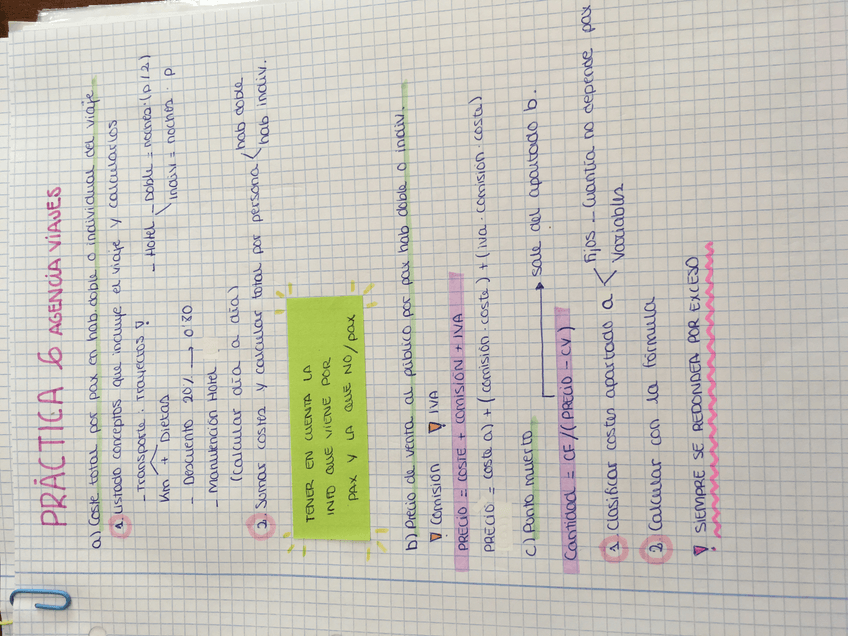 PRÁCTICA 6 AGENCIA VIAJES
a) Coste total por pax en hab. doble o individual del viaje
1. Listado conceptos que incluye el viaje y calcularlos
- Transporte: Trayectos
Km + Dietas
- Hotel - Doble = noches · (p/2)
Indiv = noches · p
- Descuento 20% → 0'80
- Manutención Hotel
(calcular día a día)
2. Sumar costes y calcular total por persona < hab doble
hab indiv.
TENER EN CUENTA LA
INFO QUE VIENE POR
PAX Y LA QUE NO/pax
b) Precio de venta al público por pax hab doble o indiv.
! Comisión ! IVA
PRECIO = COSTE + COMISIÓN + IVA
PRECIO = coste a) + (comisión · coste) + (iva · comisión · coste)
c) Punto muerto
sale del apartado b.
Cantidad = CF/(PRECIO - CV)
1 Clasificar costes apartado a < Fijos - Cuantía no depende pax
Variables
2. Calcular con la fórmula
! SIEMPRE SE REDONDEA POR EXCESO